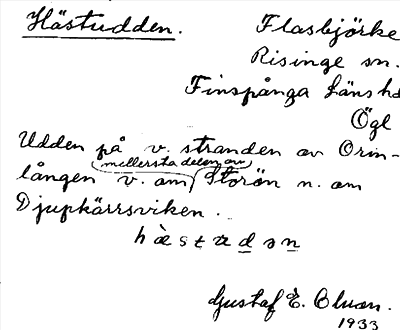 Hästudden. Flasbjörke
Risinge sn.
Finspånga länshd
Ögl
Udden på v. stranden av Orin-
mellersta delen av
lången v. om Storön n. om
Djupkärrsviken.
Gustaf E.
1933